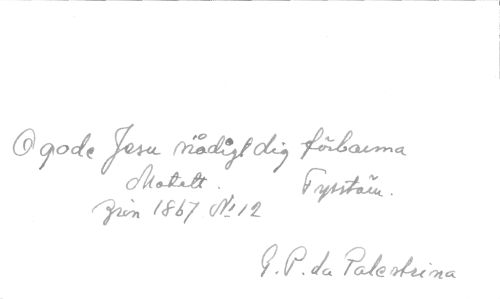 O gode Jesu nådigt dig förbarma
Motett.
1867 No 12
G. P. da Palestrina